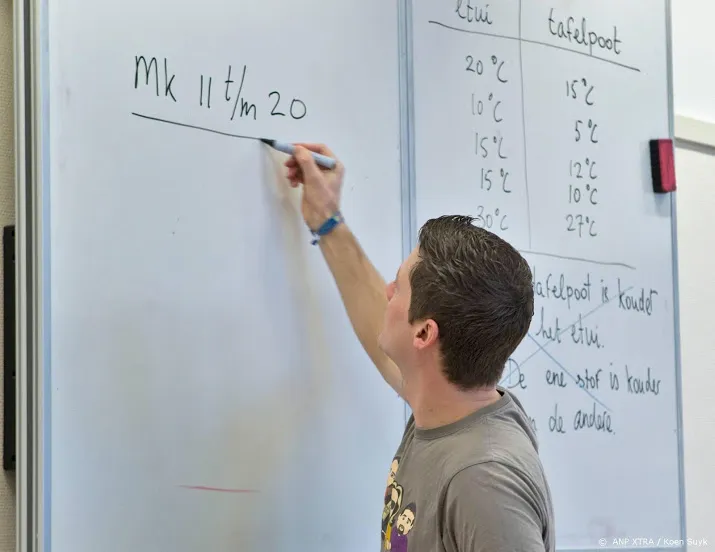 Mk 11 t/m 20
etui tafelpoot
20 °C 15 °C
10 °C 5 °C
15 °C 12 °C
15 °C 10 °C
30 °C 27 °C
tafelpoot is kouder
het etui.
De ene stof is kouder
de andere.
© ANP XTRA / Koen Suyk